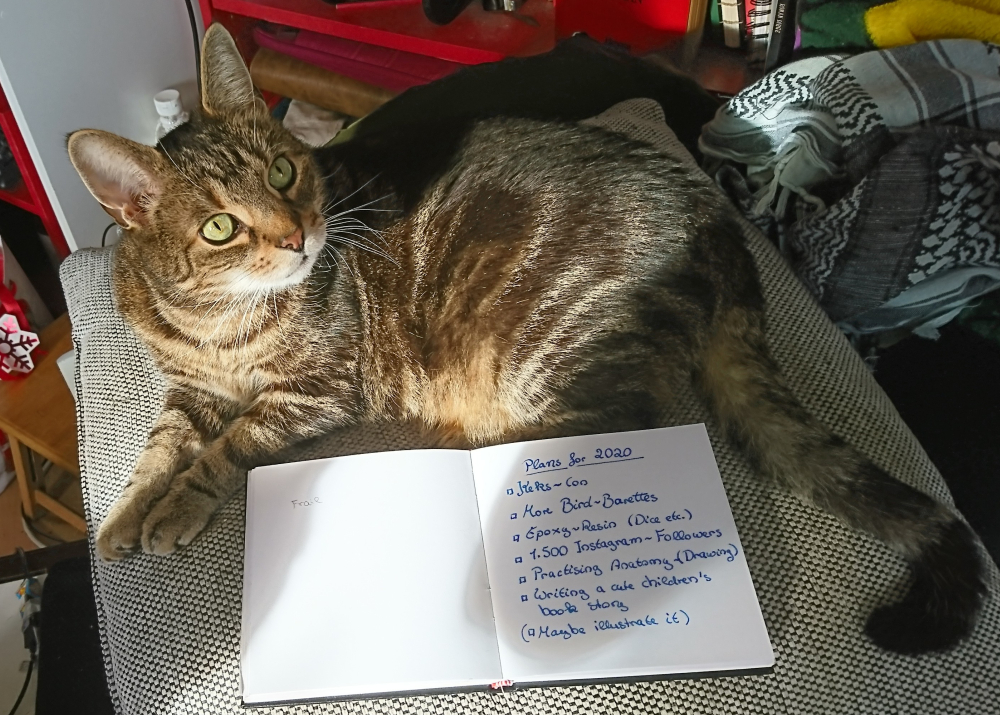 Plans for 2020
Keks~Con
More Bird~Barettes
Epoxy~Resin (Dice etc.)
1.500 Instagram~Followers
Practising Anatomy~(Drawing)
Writing a cute children's
book story
(Maybe illustrate it)